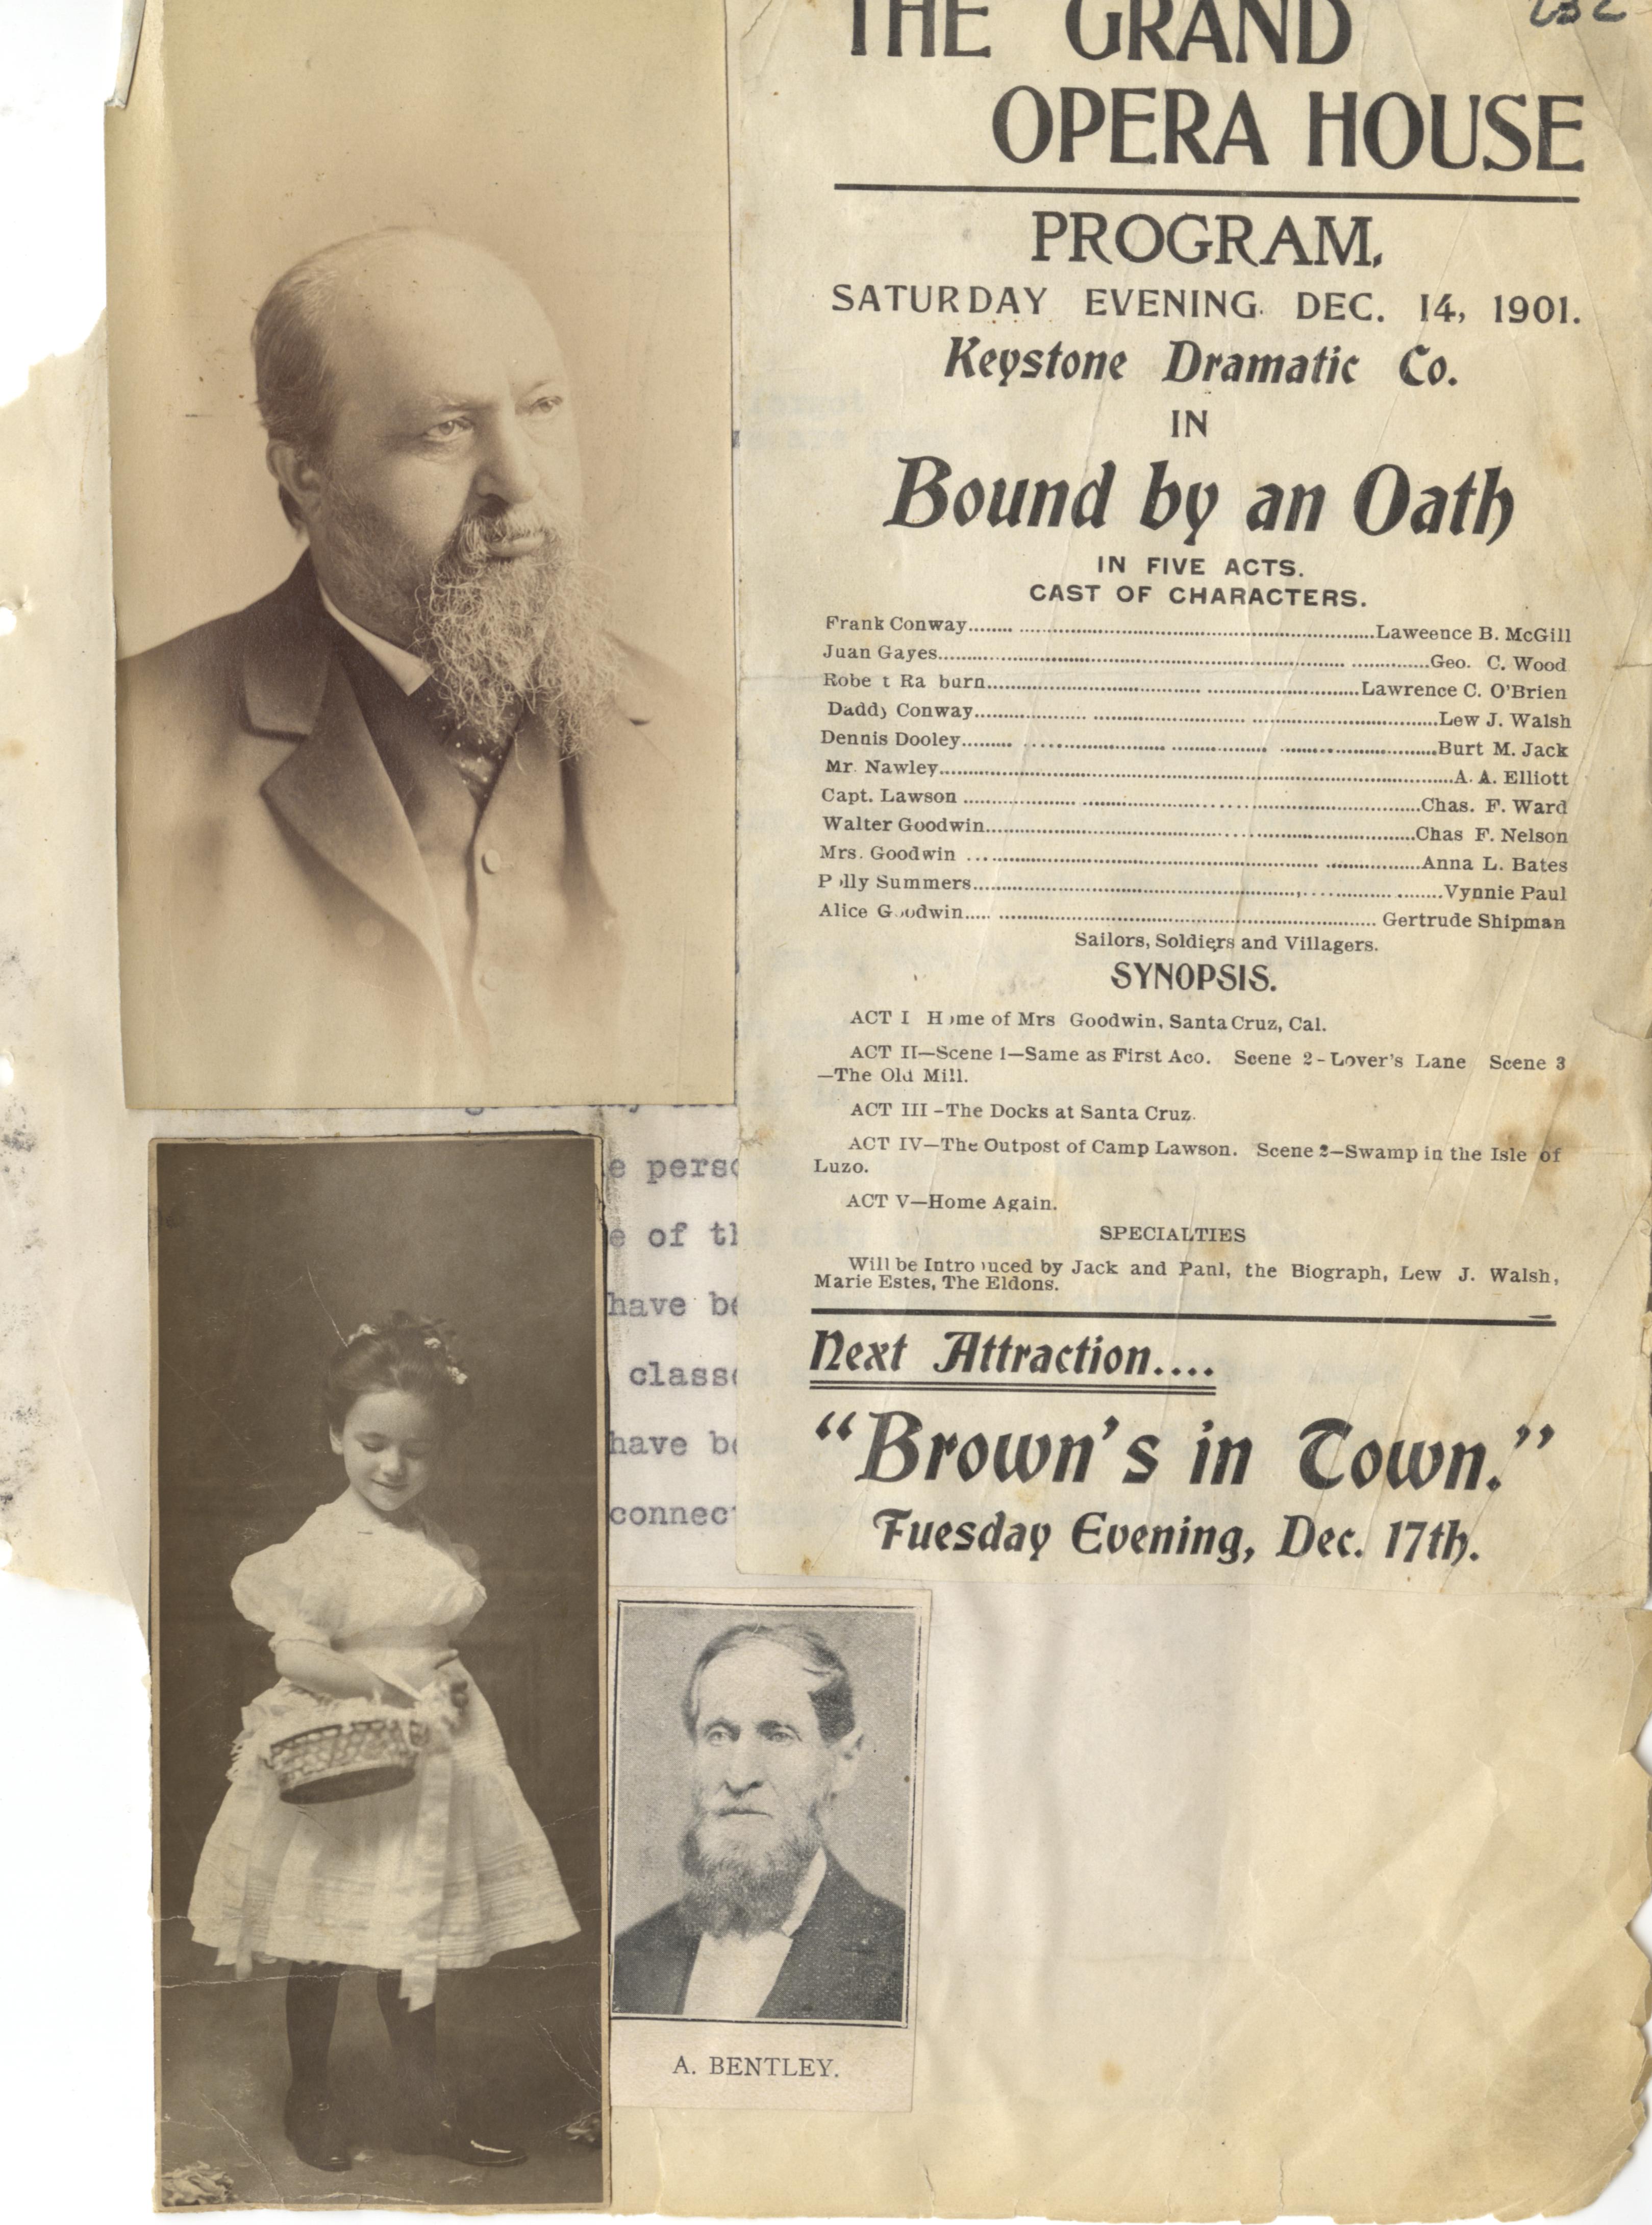 THE GRAND
OPERA HOUSE
PROGRAM.
SATURDAY EVENING. DEC. 14, 1901.
Keystone Dramatic Co.
IN
Bound by an Oath
IN FIVE ACTS.
CAST OF CHARACTERS.
Frank Conway........ ........Laweence B. McGill
Juan Gayes........ ........Geo. C. Wood
Robe t Ra burn........ ........Lawrence C. O'Brien
Daddy Conway........ ........Lew J. Walsh
Dennis Dooley........ ........Burt M. Jack
Mr. Nawley........A. A. Elliott
Capt. Lawson ........ ........Chas. F. Ward
Walter Goodwin........Chas F. Nelson
Mrs. Goodwin ........ ........Anna L. Bates
P lly Summers........ ........Vynnie Paul
Alice G odwin..... ........ Gertrude Shipman
Sailors, Soldiers and Villagers.
SYNOPSIS.
ACT I H me of Mrs Goodwin, Santa Cruz, Cal.
ACT II—Scene 1—Same as First Aco. Scene 2-Lover's Lane Scene 3
—The Old Mill.
ACT III -The Docks at Santa Cruz.
ACT IV—The Outpost of Camp Lawson. Scene 2—Swamp in the Isle of
Luzo.
ACT V—Home Again.
SPECIALTIES
Will be Intro uced by Jack and Panl, the Biograph, Lew J. Walsh,
Marie Estes, The Eldons.
Next Attraction....
"Brown's in Town."
Tuesday Evening, Dec. 17th.
e perso
e of th
have be
classe
have be
connec
A. BENTLEY.